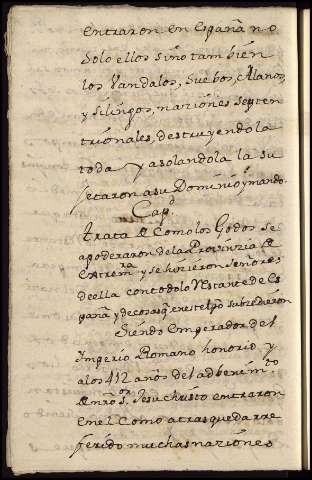 entraron en España no
solo ellos sino tambien
los Vandalos, Suebos, Alanos
y Silingos, naziones Septen
trionales, destruyendola
toda y asolandola la su
jetaron a su Dominio y mando.
Capº
trata de Como los Godos se
apoderaron de la Provinzia de
Extremra y se hizieron señores
de ella con todo lo restante de Es
paña y de cosas q en este tpo subzedieron
Siendo emperador del
Imperio Romano honorio y
a los 412 años del advenimto
de nro Sor Jesu christo entraron
en el Como atras queda rre
ferido muchas naziones